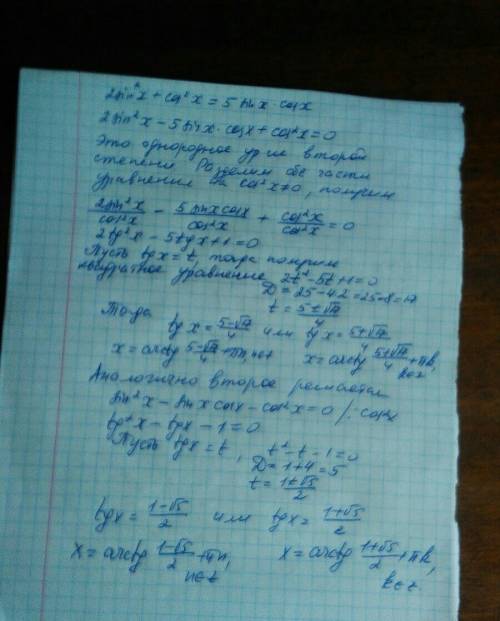 2sin²x + cos²x = 5 sinx · cosx
2sin²x - 5sinx · cosx + cos²x = 0
Это однородное ур-ие второй
степени. Разделим обе части
уравнения на cos²x≠0, получим
2sin²x/cos²x - 5sinxcosx/cos²x + cos²x/cos²x = 0
2tg²x - 5tgx + 1 = 0
Пусть tgx = t, тогда получим
квадратное уравнение 2t² - 5t + 1 = 0
D = 25 - 4·2 = 25 - 8 = 17
t = (5±√17)/4
Тогда
tgx = (5-√17)/4 или tgx = (5+√17)/4
x = arctg (5-√17)/4 + πn, n∈z x = arctg (5+√17)/4 + πk,
k∈z
Аналогично второе решается
sin²x - sinxcosx - cos²x = 0 /: cos²x
tg²x - tgx - 1 = 0
Пусть tgx = t, t² - t - 1 = 0
D = 1 + 4 = 5
t = (1±√5)/2
tgx = (1-√5)/2 или tgx = (1+√5)/2
x = arctg (1-√5)/2 + πn, x = arctg (1+√5)/2 + πk,
n∈z k∈z.